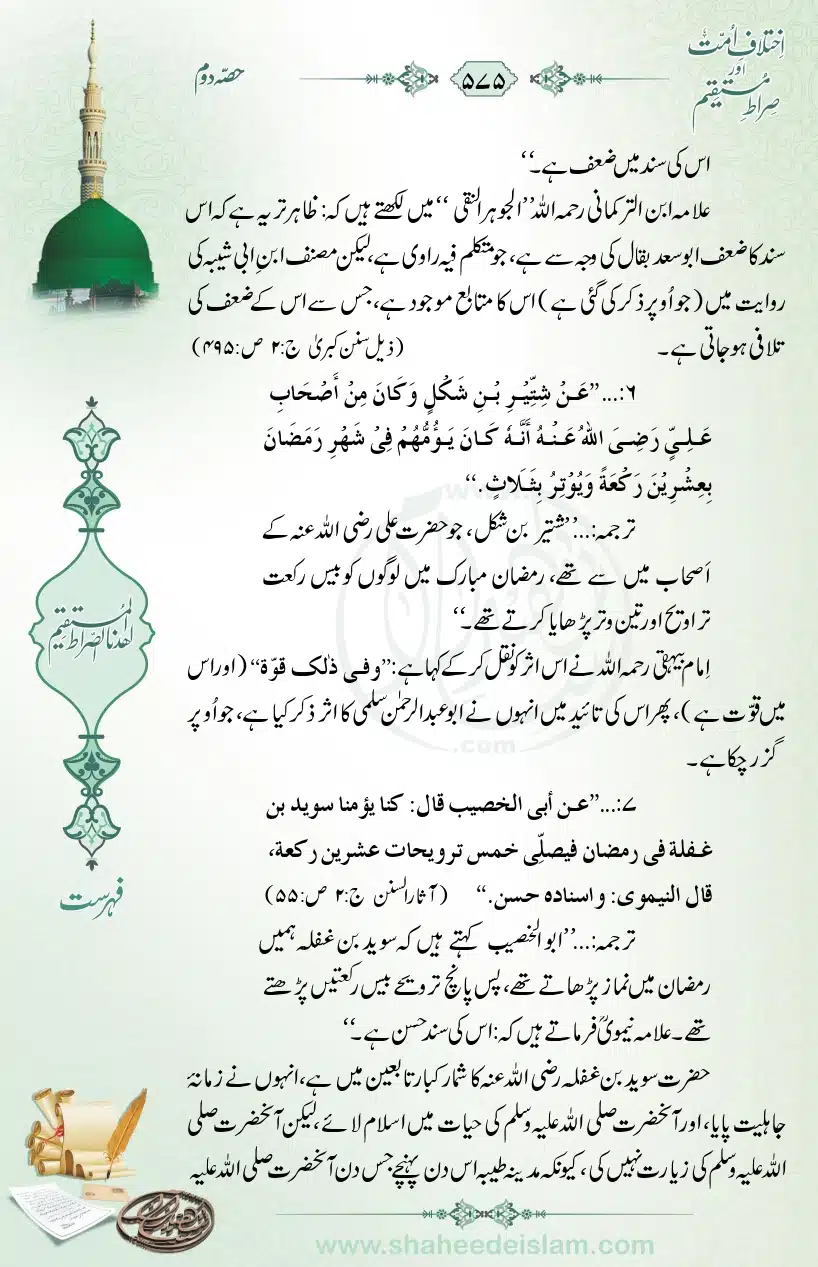 اِختلافِ اُمّت
اور
صراطِ مستقیم
۵۷۵
حصّہ دوم
اس کی سند میں ضعف ہے۔‘‘
علامہ ابن الترکمانی رحمہ اللہ ’’الجوہر النقی‘‘ میں لکھتے ہیں کہ: ظاہر تر یہ ہے کہ اس
سند کا ضعف ابو سعد بقال کی وجہ سے ہے، جو متکلم فیہ راوی ہے، لیکن مصنف ابنِ ابی شیبہ کی
روایت میں (جو اُوپر ذکر کی گئی ہے) اس کا متابع موجود ہے، جس سے اس کے ضعف کی
تلافی ہوجاتی ہے۔ (ذیل سنن کبریٰ ج:۲ ص:۴۹۵)
۶:...’’عَنْ شتِّیْرِ بْنِ شَکْلٍ وَکَانَ مِنْ أَصْحَابِ
عَلِیٍّ رَضِیَ اللهُ عَنْهُ أَنَّهٗ کَانَ یَؤُمُّهُمْ فِیْ شَهْرِ رَمَضَانَ
بِعِشْرِیْنَ رَکْعَةً وَیُوْتِرُ بِثَلَاثٍ.‘‘
ترجمہ:...’’شتیر بن شکل، جو حضرت علی رضی اللہ عنہ کے
اَصحاب میں سے تھے، رمضان مبارک میں لوگوں کو بیس رکعت
تراویح اور تین وتر پڑھایا کرتے تھے۔‘‘
اِمام بیہقی رحمہ اللہ نے اس اثر کو نقل کرکے کہا ہے: ’’وفی ذٰلک قوّة‘‘ (اور اس
میں قوّت ہے)، پھر اس کی تائید میں انہوں نے ابو عبدالرحمٰن سلمی کا اثر ذکر کیا ہے، جو اُوپر
گزر چکا ہے۔
۷:...’’عن أبی الخصیب قال: کنا یؤمنا سوید بن
غفلة فی رمضان فیصلّی خمس ترویحات عشرین رکعة،
قال النیموی: واسناده حسن.‘‘ (آثار السنن ج:۲ ص:۵۵)
ترجمہ:...’’ابوالخصیب کہتے ہیں کہ سوید بن غفلہ ہمیں
رمضان میں نماز پڑھاتے تھے، پس پانچ ترویحے بیس رکعتیں پڑھتے
تھے۔ علامہ نیمویؒ فرماتے ہیں کہ: اس کی سند حسن ہے۔‘‘
حضرت سوید بن غفلہ رضی اللہ عنہ کا شمار کبار تابعین میں ہے، انہوں نے زمانۂ
جاہلیت پایا، اور آنحضرت صلی اللہ علیہ وسلم کی حیات میں اسلام لائے، لیکن آنحضرت صلی
اللہ علیہ وسلم کی زیارت نہیں کی، کیونکہ مدینہ طیبہ اس دن پہنچے جس دن آنحضرت صلی اللہ علیہ
اھدنا الصراط المستقیم
فہرست
www.shaheedeislam.com